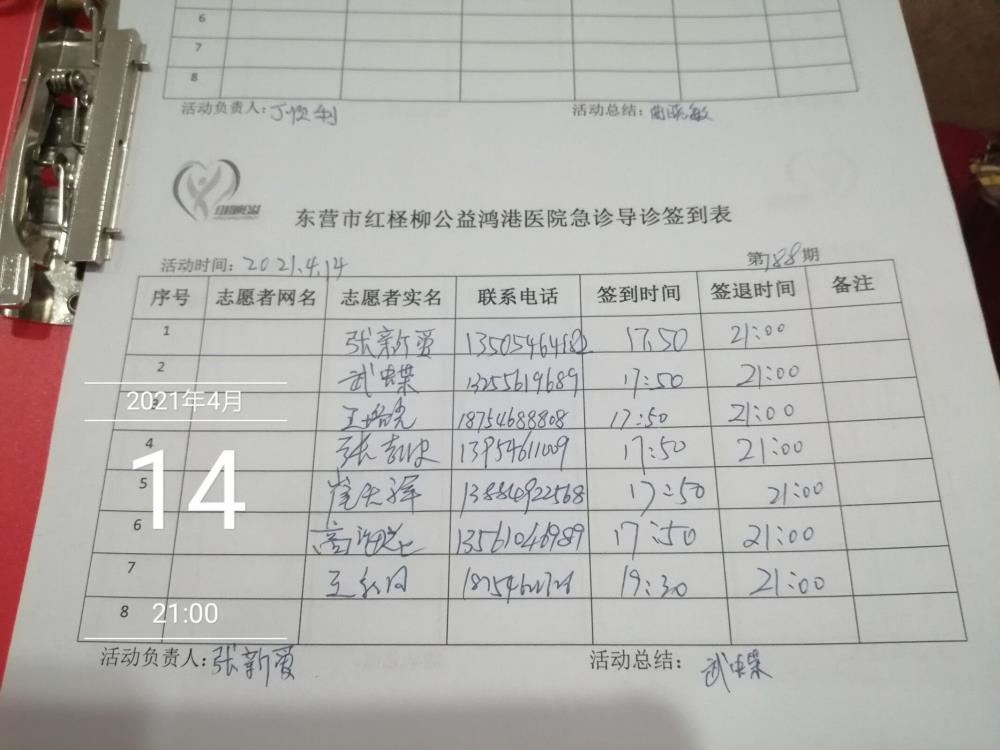 6
7
8
活动负责人：丁俊利
活动总结：曲晓敏
东营市红柽柳公益鸿港医院急诊导诊签到表
活动时间：2021.4.14 第788期
序号 志愿者网名 志愿者实名 联系电话 签到时间 签退时间 备注
1 张新爱 17:50 21:00
2 武蝶 13255619689 17:50 21:00
3 18754688808 17:50 21:00
4 张 13954611009 17:50 21:00
5 崔庆辉 13884922568 17:50 21:00
6 高 13561046989 17:50 21:00
7 王 19:30 21:00
8
活动负责人：张新爱
活动总结：武蝶
2021年4月
14
21:00